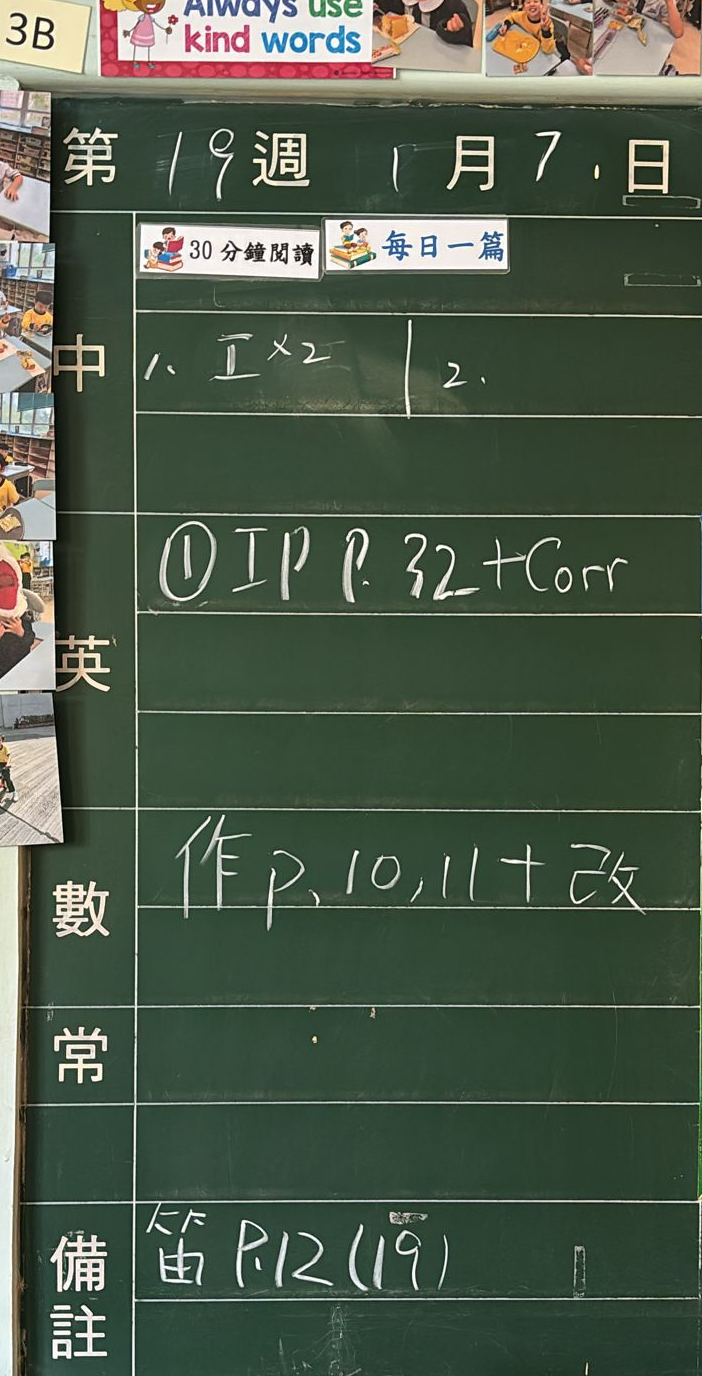 3B
Always use
kind words
第 19 週 1 月 7 日
30 分鐘閱讀 每日一篇
中 1. 工×2 | 2.
英 ① IP P. 32 + Corr
數 作 p. 10, 11 + 改
常
備註 笛 P.12 (19)